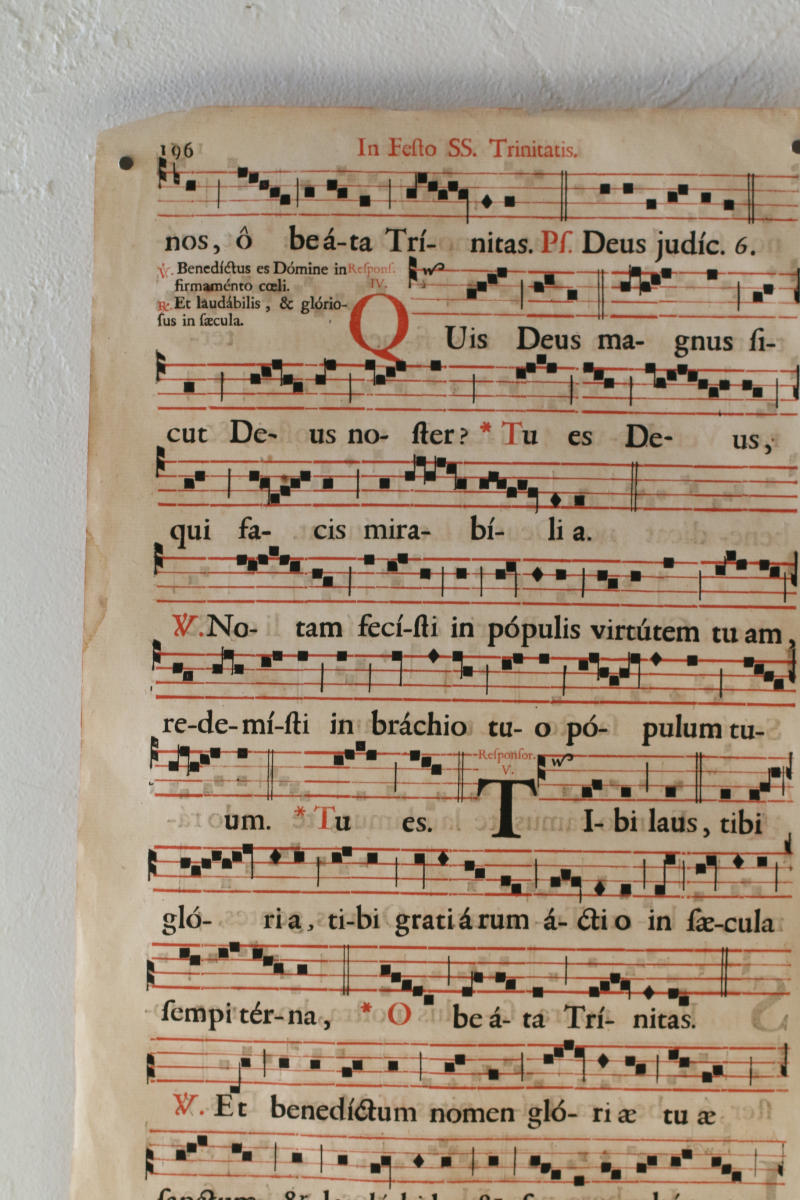 196
In Feſto SS. Trinitatis.
nos, ô beá-ta Trí- nitas. Pſ. Deus judíc. 6.
℣. Benedíctus es Dómine in
firmaménto cœli.
℟. Et laudábilis, & glório-
ſus in ſæcula.
Reſponſ.
IV.
QUis Deus ma- gnus ſi-
cut De- us no- ſter? * Tu es De- us,
qui fa- cis mira- bí- li a.
℣. No- tam fecí-ſti in pópulis virtútem tu am,
re-de-mí-ſti in bráchio tu- o pó- pulum tu-
um. * Tu es.
Reſponſor.
V.
TI- bi laus, tibi
gló- ri a, ti-bi gratiárum á- cti o in ſæ-cula
ſempi tér-na, * O be á- ta Trí- nitas.
℣. Et benedíctum nomen gló- ri æ tu æ
ſanctum